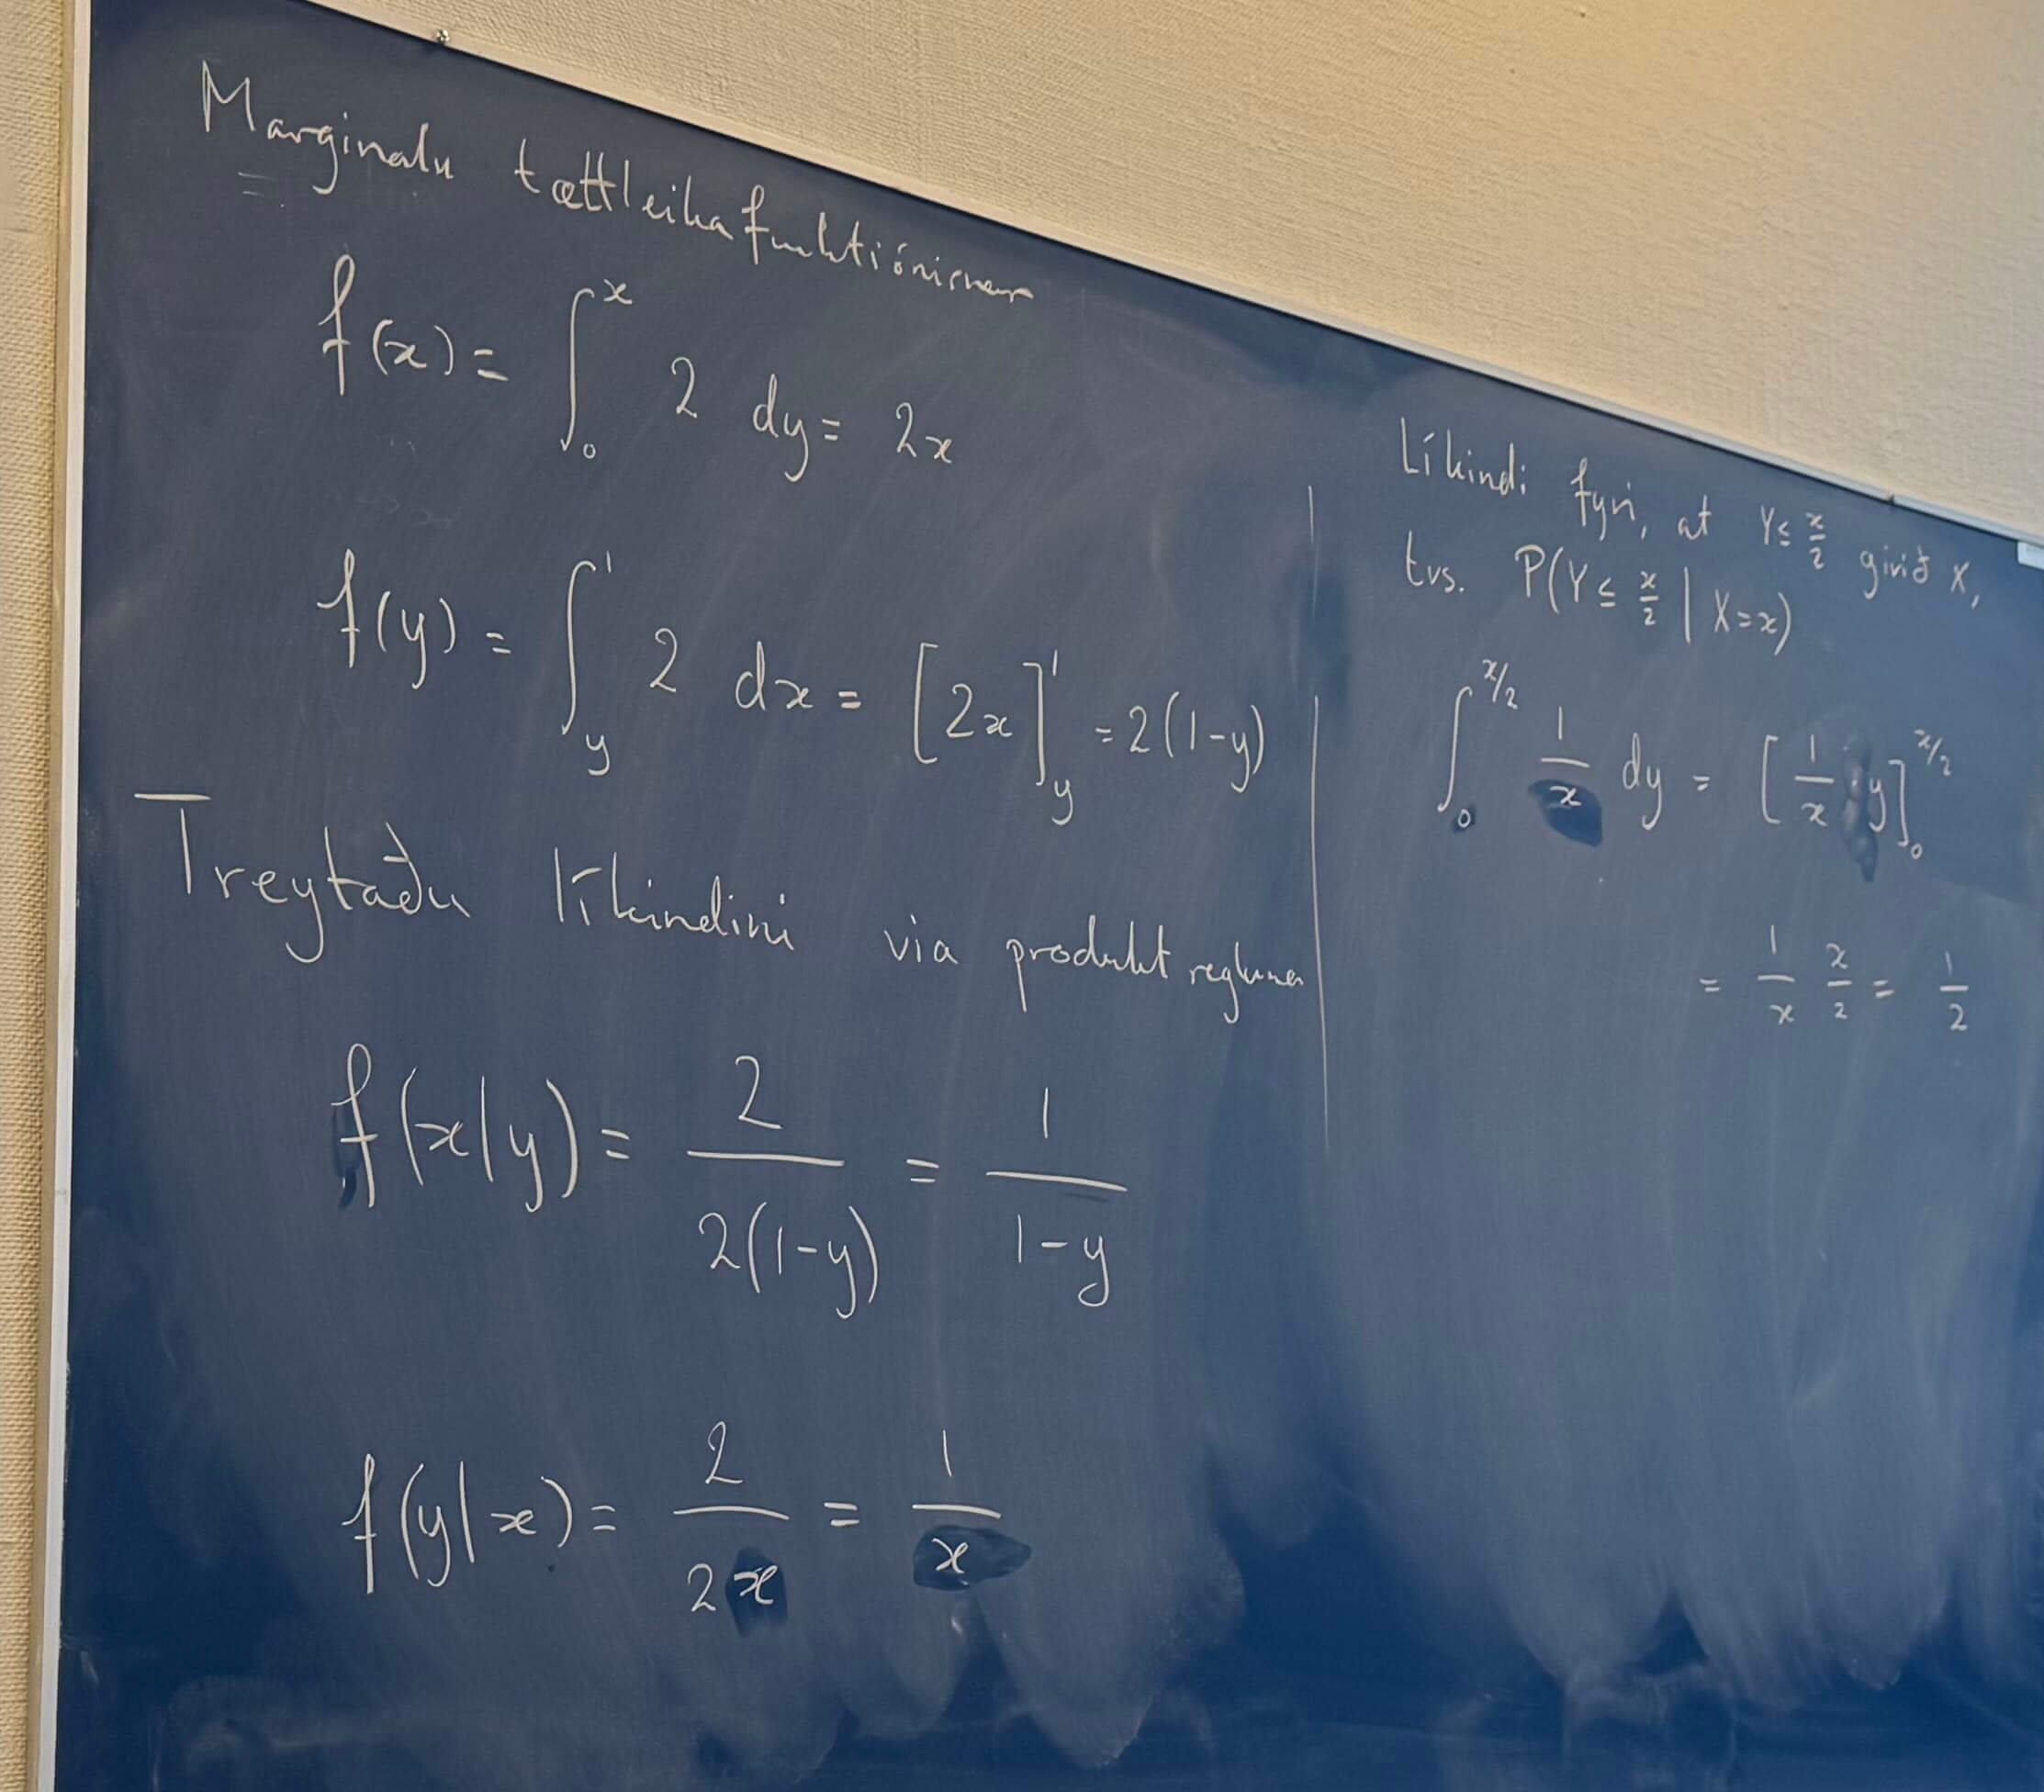 Marginalu tættleikafunktiónirnar
f(x) = ∫₀ˣ 2 dy = 2x
f(y) = ∫_y^1 2 dx = [2x]_y^1 = 2(1-y)
Treytaðu líkindini via produkt regluna
f(x|y) = 2/(2(1-y)) = 1/(1-y)
f(y|x) = 2/(2x) = 1/x
Líkindi fyri, at Y ≤ x/2 givið X,
tvs. P(Y ≤ x/2 | X=x)
∫₀^{x/2} 1/x dy = [1/x · y]₀^{x/2}
= 1/x x/2 = 1/2